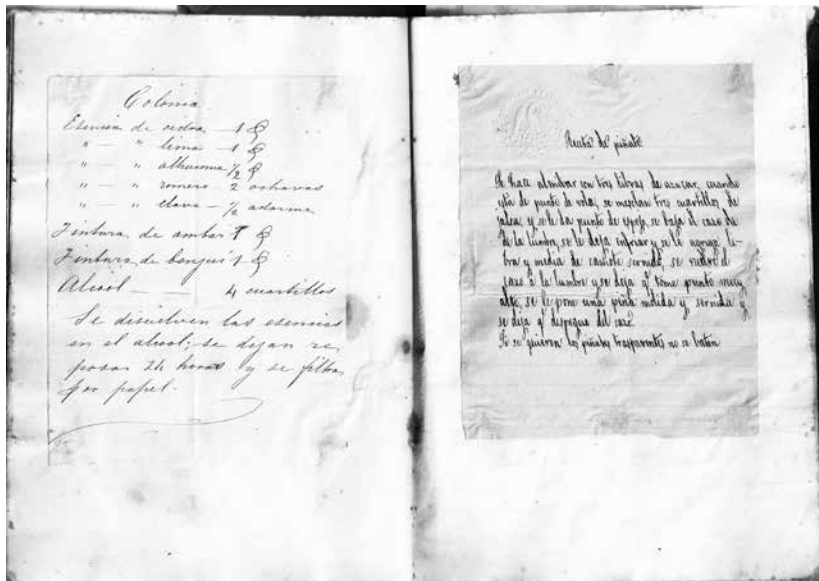 Colonia
Esencia de cedra — 1 ℥
" — " lima — 1 ℥
" — " alhucema ½ ℥
" — " romero 2 ochavas
" — " clavo — ½ adarme
Tintura de ambar 1 ℥
Tintura de benjuí 1 ℥
Alcool — — 4 cuartillos
Se disuelven las esencias
en el alcool; se dejan re
posar 24 horas y se filtra
por papel.
Receta de piñate
Se hace almibar con tres libras de azucar, cuando
está de punto de bola, se mezclan tres cuartillos de
jalea, y se le da punto de espejo, se baja el caso de
de la lumbre, se le deja enfriar y se le agrega li-
bra y media de camote sernido, se vuelve el
cazo á la lumbre y se deja q. tome punto muy
alto, se le pone una piña molida y sernida y
se deja q. despegue del cazo.
Si se quieren los piñates trasparentes no se baten